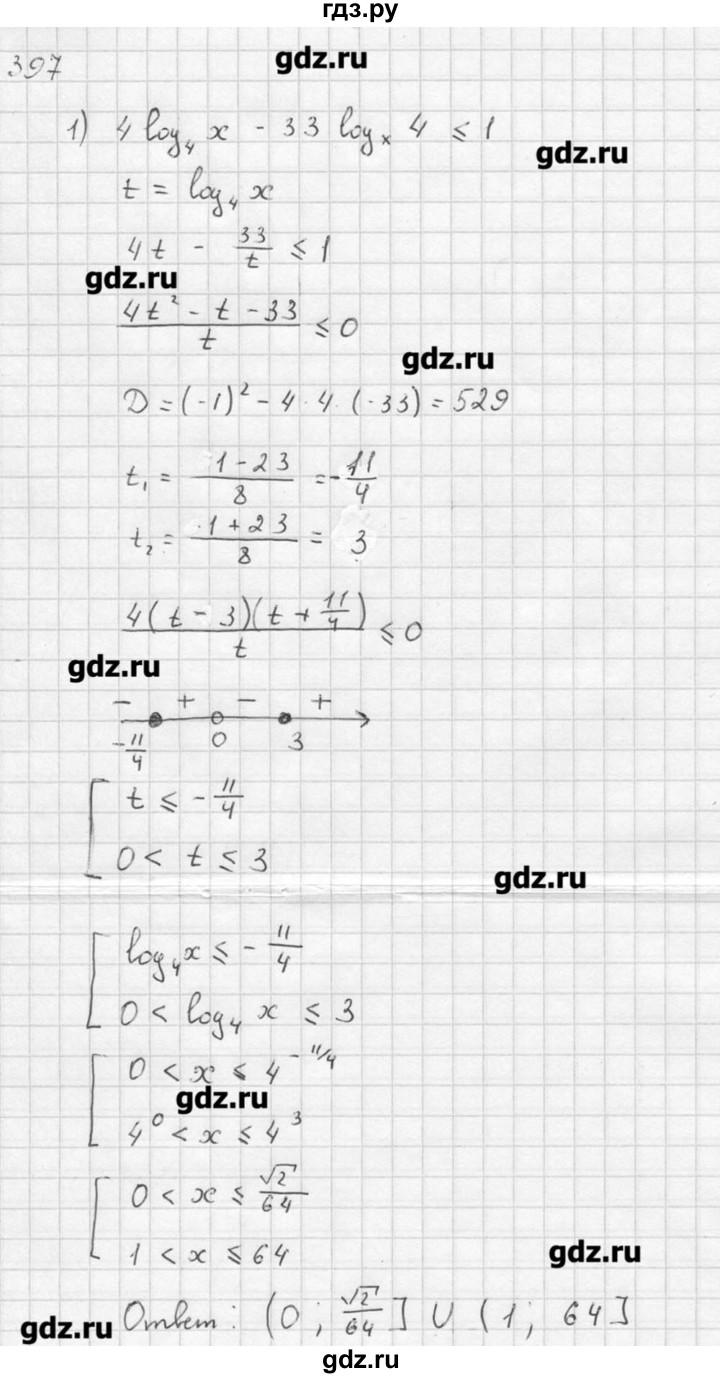 гдз.ру
397
gdz.ru
1) 4 log₄ x - 33 logₓ 4 ≤ 1
gdz.ru
t = log₄ x
4t - 33/t ≤ 1
gdz.ru
(4t² - t - 33)/t ≤ 0
gdz.ru
D = (-1)² - 4·4·(-33) = 529
t₁ = (1 - 23)/8 = -11/4
t₂ = (1 + 23)/8 = 3
4(t - 3)(t + 11/4)/t ≤ 0
gdz.ru
- + - +
-11/4 0 3
[ t ≤ -11/4
0 < t ≤ 3
gdz.ru
[ log₄ x ≤ -11/4
0 < log₄ x ≤ 3
[ 0 < x ≤ 4^(-11/4)
gdz.ru
4⁰ < x ≤ 4³
[ 0 < x ≤ √2/64
1 < x ≤ 64
gdz.ru
Ответ: (0; √2/64] ∪ (1; 64]
gdz.ru
gdz.ru